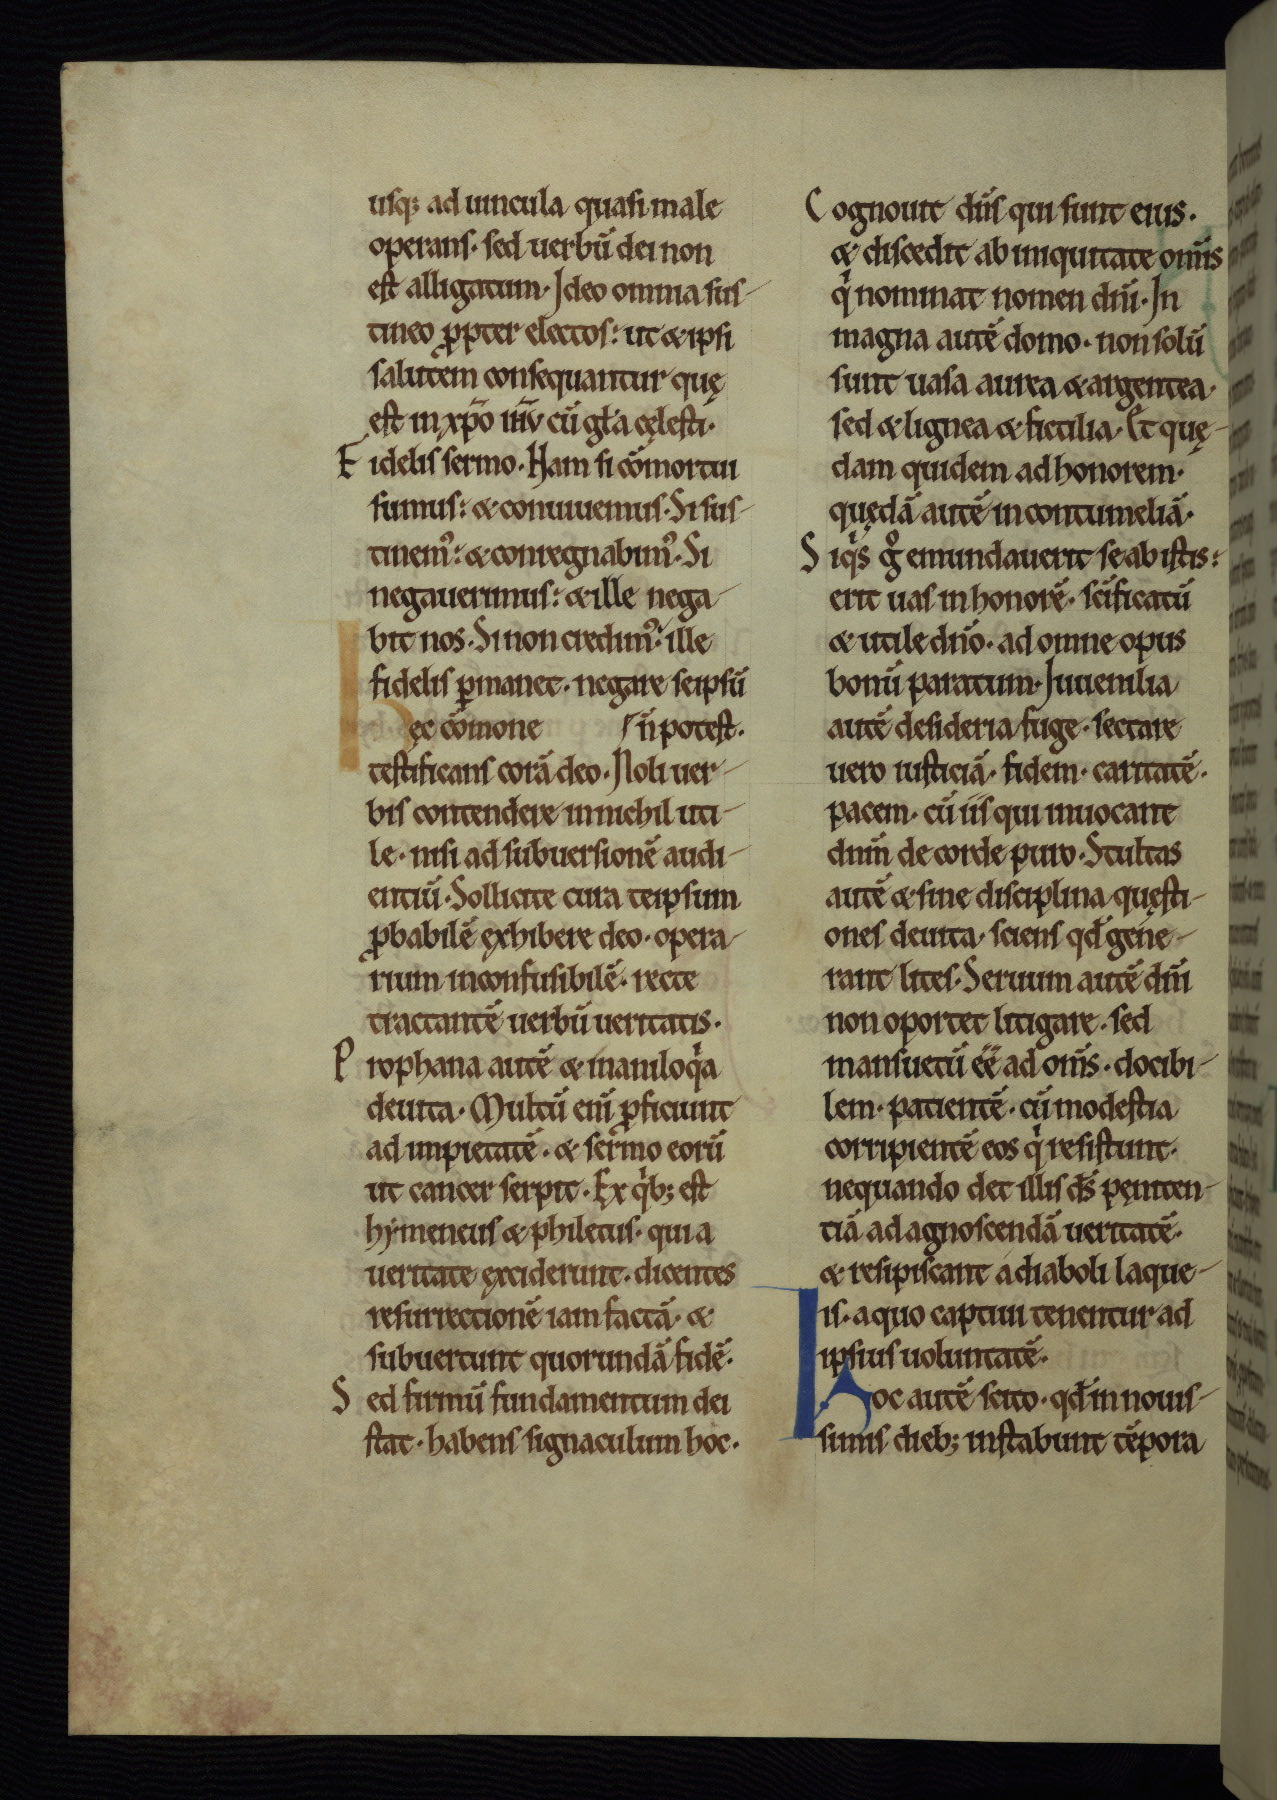 usq; ad uincula quasi male
operans· sed uerbū dei non
est alligatum· Ideo omnia sus-
tineo ꝓpter electos: ut & ipsi
salutem consequantur quę
est in xp̄o ih̄u cū gl̄a cęlesti·
Fidelis sermo· Nam si cōmortui
sumus: & conuiuemus· Si sus-
tinemꝰ: & conregnabimꝰ· Si
negauerimus: & ille nega-
bit nos· Si non credimꝰ: ille
fidelis ꝑmanet· negare seipsū
Hęc cōmone n̄ potest·
testificans corā deo· Noli uer-
bis contendere in nichil uti-
le· nisi ad subuersionē audi-
entiū· Sollicite cura teipsum
ꝓbabilē exhibere deo· opera-
rium inconfusibilē· recte
tractantē uerbū ueritatis·
Prophana autē & inaniloqͥa
deuita· Multū eni̅ ꝓficiunt
ad impietatē· & sermo eorū
ut cancer serpit· Ex qͥb; est
hymeneus & philetus· qui a
ueritate exciderunt· dicentes
resurrectionē iam factā· &
subuertunt quorundā fidē·
Sed firmū fundamentum dei
stat· habens signaculum hoc·
Cognouit dn̄s qui sunt eius·
& discedit ab iniquitate om̄is
qͥ nominat nomen dn̄i· In
magna autē domo· non solū
sunt uasa aurea & argentea·
sed & lignea & fictilia· Et quę-
dam quidem ad honorem·
quędā autē in contumeliā·
Si qͥs gͦ emundauerit se ab istis:
erit uas in honorē· sc̄ificatū
& utile dn̄o· ad omne opus
bonū paratum· Iuuenilia
autē desideria fuge· sectare
uero iusticiā· fidem· caritatē·
pacem· cū iis qui inuocant
dnm̄ de corde puro· Stultas
autē & sine disciplina quęsti-
ones deuita· sciens qd̄ gene-
rant lites· Seruum autē dn̄i
non oportet litigare· sed
mansuetū ēē ad om̄s· docibi-
lem· patientē· cū modestia
corripientē eos qͥ resistunt·
nequando det illis ds̄ pęniten-
tiā ad agnoscendā ueritatē·
& resipiscant a diaboli laque-
is· a quo captiui tenentur ad
ipsius uoluntatē·
Hoc autē scito· qd̄ in nouis-
simis dieb; instabunt tēpora